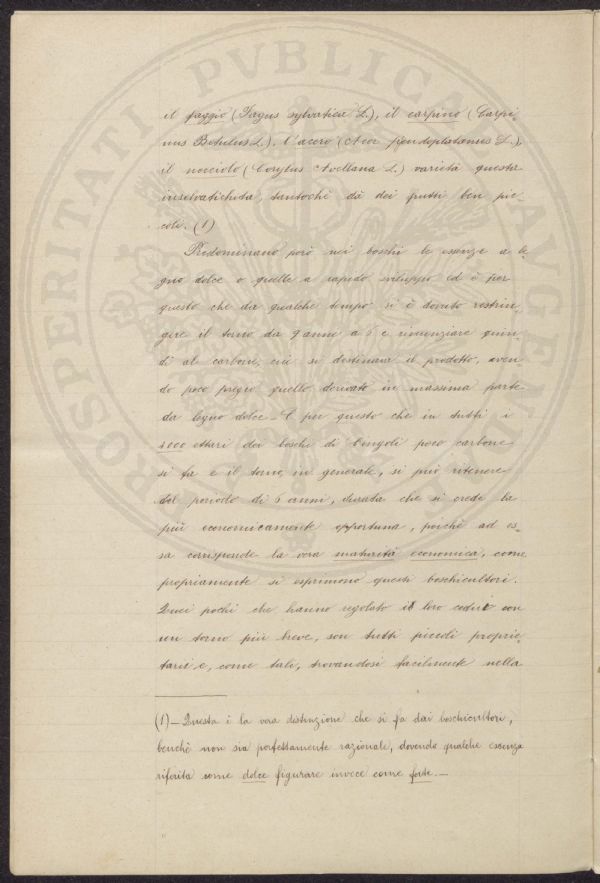 il faggio (Fagus sylvatica L.), il carpino (Carpi-
nus Betulus L.), l'acero (Acer pseudoplatanus L.),
il nocciolo (Corylus Avellana L.) varietà questa
inselvatichita, tantochè dà dei frutti ben pic-
coli. (1)
Predominano però nei boschi le essenze a le-
gno dolce o quelle a rapido sviluppo ed è per
questo che da qualche tempo si è dovuto restrin-
gere il turno da 9 anni a 6 e rinunziare quin-
di al carbone, cui si destinava il prodotto, aven-
do poco pregio quello derivato in massima parte
da legno dolce - E per questo che in tutti i
4000 ettari dei boschi di Cingoli poco carbone
si fa e il turno, in generale, si può ritenere
del periodo di 6 anni, durata che si crede la
più economicamente opportuna, poichè ad es-
sa corrisponde la vera maturità economica, come
propriamente si esprimono questi boschicultori.
Quei pochi che hanno regolato il loro ceduo con
un turno più breve, son tutti piccoli proprie-
tarii e, come tali, trovandosi facilmente nella
(1) - Questa è la vera distinzione che si fa dai boschicultori,
benchè non sia perfettamente razionale, dovendo qualche essenza
riferita come dolce figurare invece come forte. -
PROSPERITATI PVBLICAE AVGENDAE